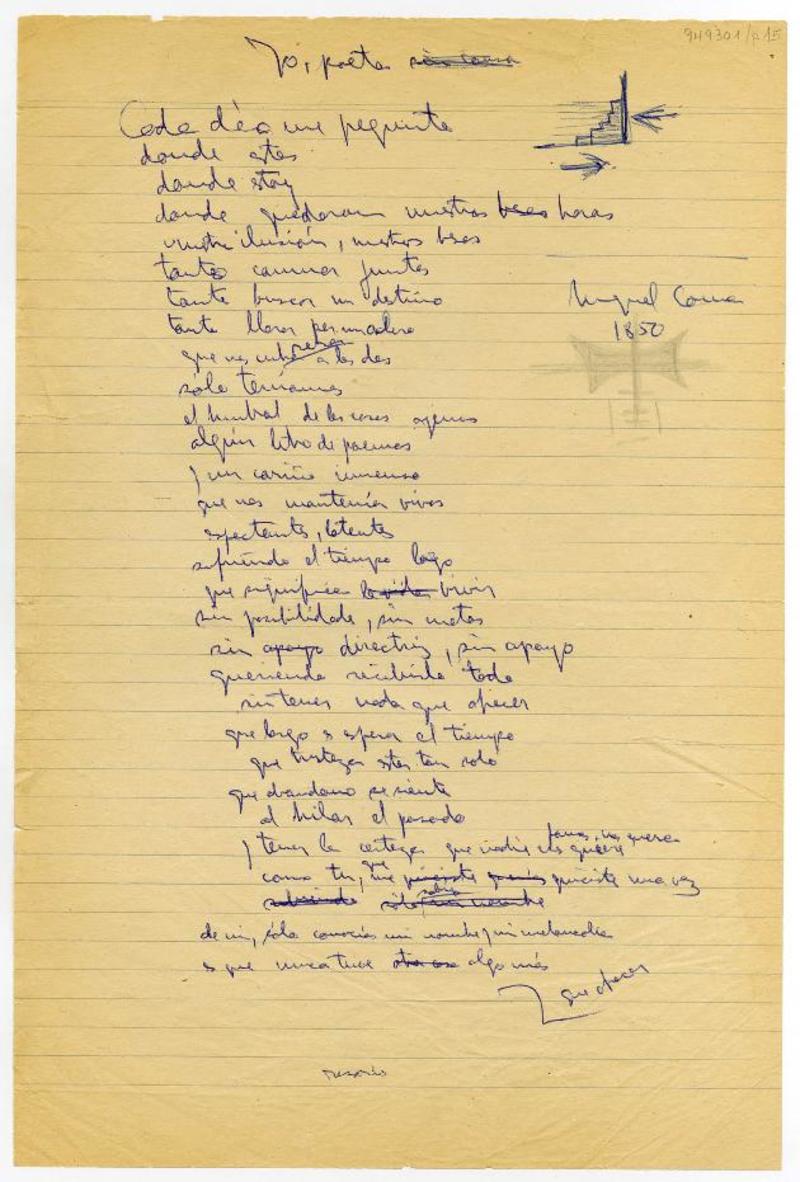 949301/p15
Yo, poeta
Cada día me pregunto
donde estas
donde estoy
donde quedaron nuestras besos horas
nuestra ilusión, nuestros besos
tanto caminar juntos
tanto buscar un destino
Miguel
tanto llorar por un madero
1850
que nos a los dos
sólo teníamos
el humbral de las casas ajenas
algún libro de poemas
y un cariño inmenso
que nos mantenía vivos
espectantes, latentes
sufriendo el tiempo largo
que significa la vida vivir
sin posibilidades, sin metas
sin apoyo directriz, sin apoyo
queriendo recibirlo todo
sin tener nada que ofrecer
que largo es esperar el tiempo
que tristeza estar tan solo
que abandono se siente
al hilar el pasado
y tener la certeza que nadie nos quiere
como tu, que me quisiste una vez
sabiendo sólo mi nombre
de mi, sólo conocías mi nombre y mi melancolía
es que nunca tuve algo más
que ofrecer